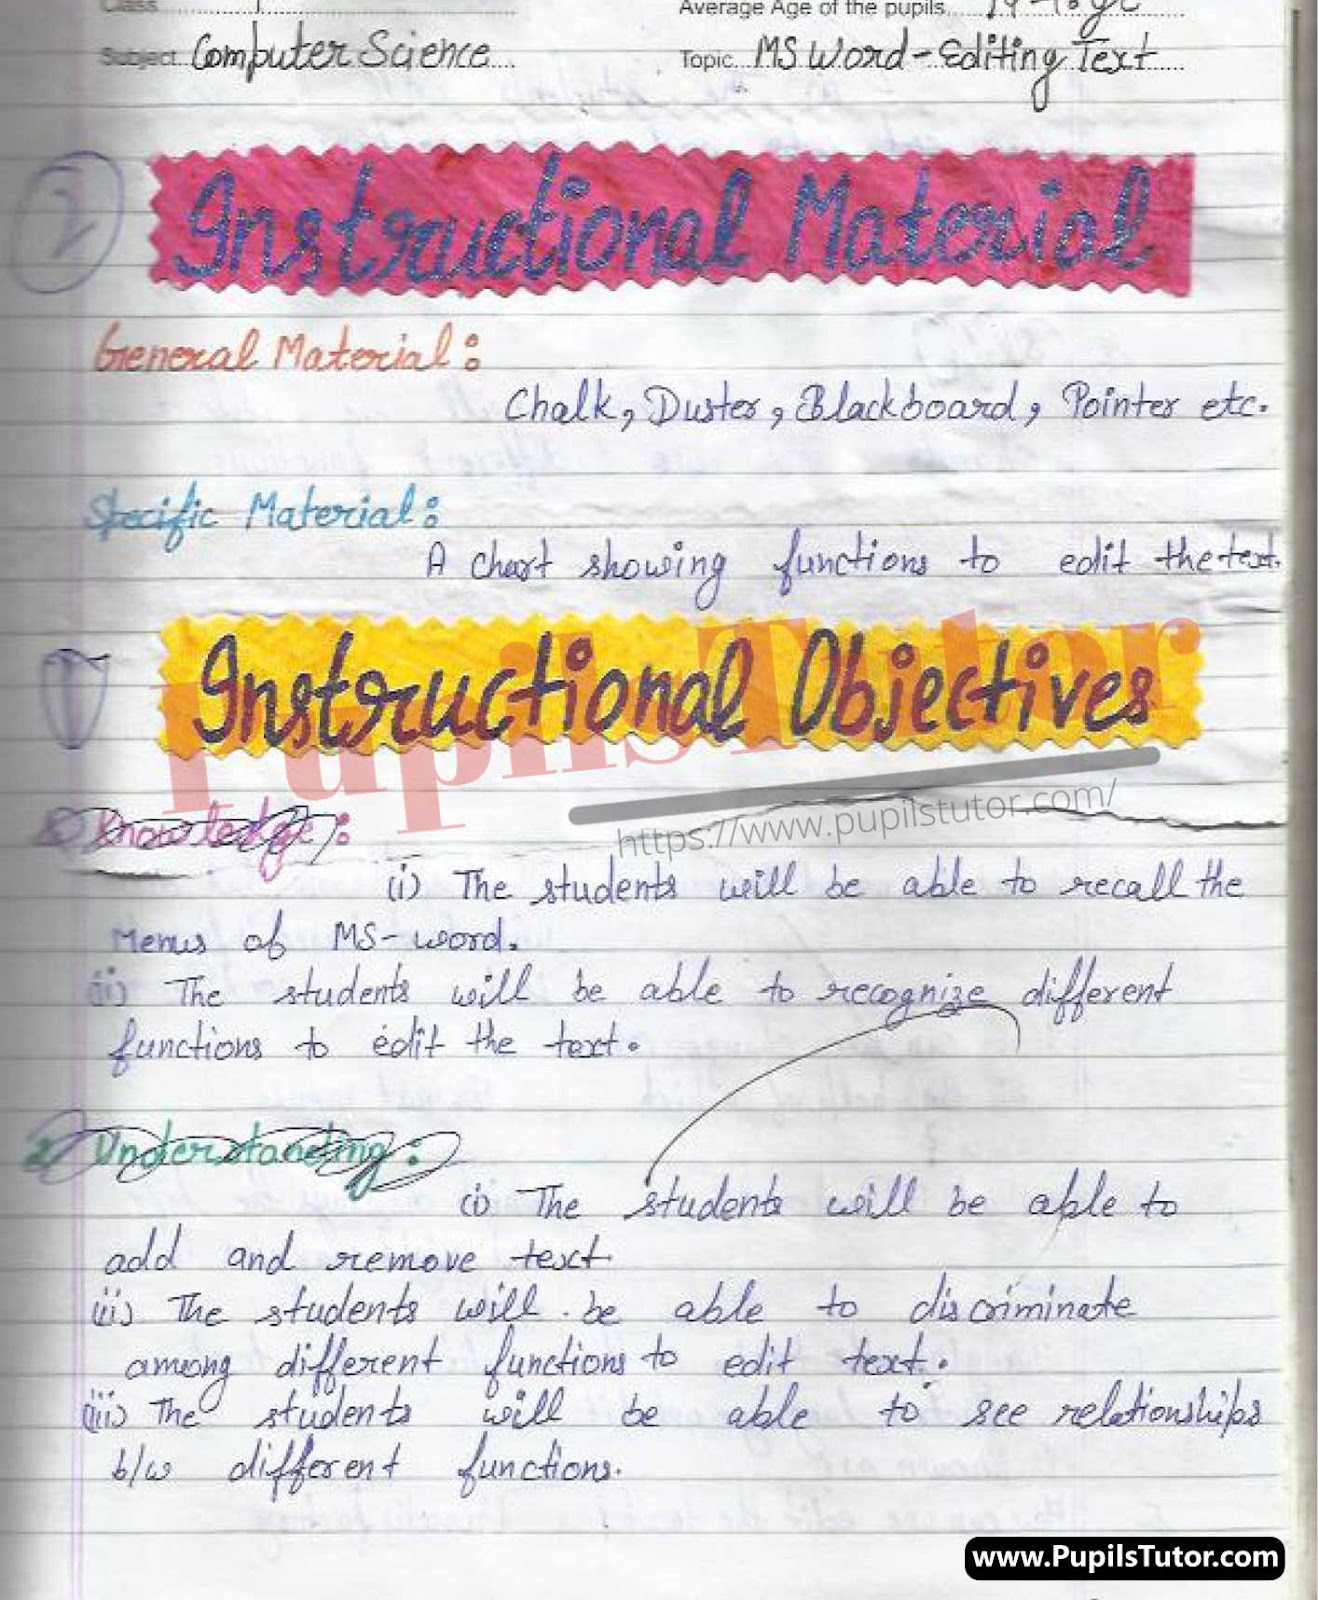 Class
Average Age of the pupils
Subject Computer Science
Topic MS Word - Editing Text
2
Instructional Material
General Material:
Chalk, Duster, Blackboard, Pointer etc.
Specific Material:
A chart showing functions to edit the text.
1
Instructional Objectives
PupilsTutor
https://www.pupilstutor.com/
Knowledge:
(i) The students will be able to recall the
Menus of MS-word.
(ii) The students will be able to recognize different
functions to edit the text.
2 Understanding:
(i) The students will be able to
add and remove text
(ii) The students will be able to discriminate
among different functions to edit text.
(iii) The students will be able to see relationships
b/w different functions.
www.PupilsTutor.com